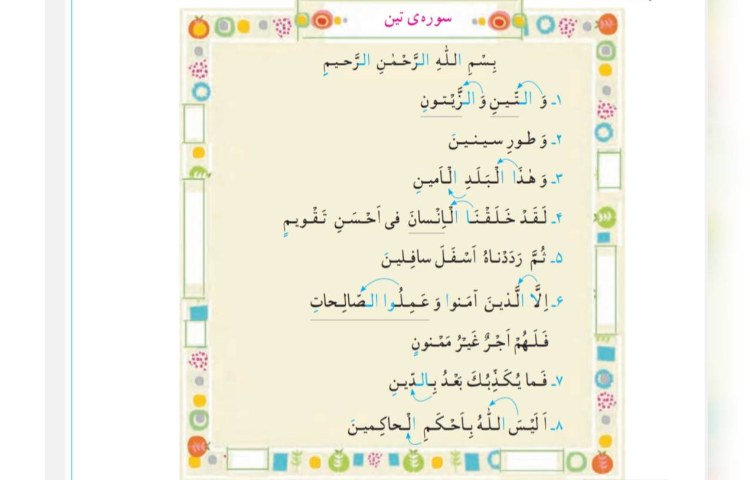 سوره‌ی تین
بِسْمِ اللّٰهِ الرَّحْمٰنِ الرَّحیمِ
۱ـ وَ التّینِ وَ الزَّیْتونِ
۲ـ وَ طورِ سینینَ
۳ـ وَ هٰذَا الْبَلَدِ الْاَمینِ
۴ـ لَقَدْ خَلَقْنَا الْاِنْسانَ فی اَحْسَنِ تَقْویمٍ
۵ـ ثُمَّ رَدَدْناهُ اَسْفَلَ سافِلینَ
۶ـ اِلَّا الَّذینَ آمَنوا وَ عَمِلُوا الصّالِحاتِ
فَلَهُمْ اَجْرٌ غَیْرُ مَمْنونٍ
۷ـ فَما یُکَذِّبُكَ بَعْدُ بِالدّینِ
۸ـ اَ لَیْسَ اللّٰهُ بِاَحْکَمِ الْحاکِمینَ